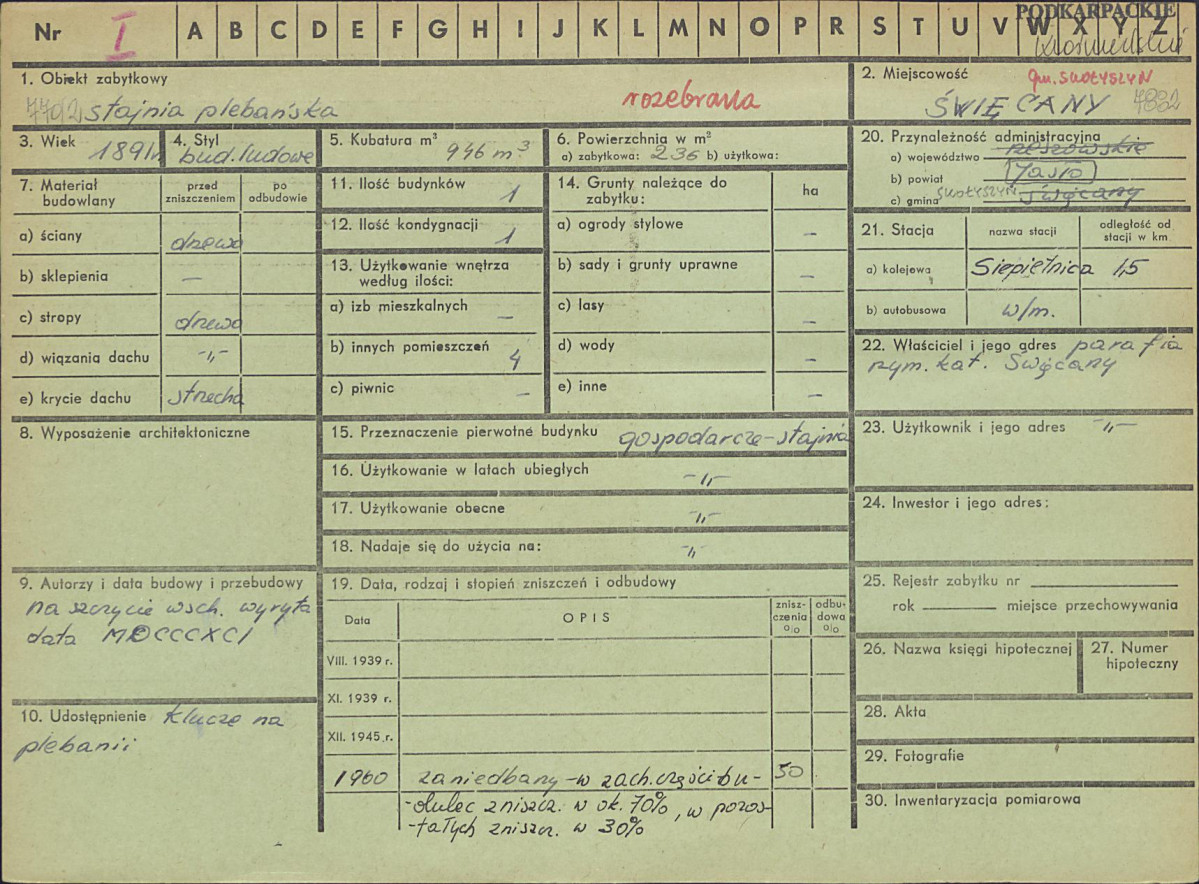 PODKARPACKIE
Nr I A B C D E F G H I J K L M N O P R S T U V W X Y Z
krośnieńskie
1. Obiekt zabytkowy
stajnia plebańska
rozebrana
2. Miejscowość
gm. SKOŁYSZYN
ŚWIĘCANY 7882
3. Wiek 1891r
4. Styl
bud. ludowe
5. Kubatura m³
946 m³
6. Powierzchnia w m²
a) zabytkowa: 236 b) użytkowa:
20. Przynależność administracyjna
a) województwo rzeszowskie
b) powiat Jasło
c) gmina SKOŁYSZYN Święcany
7. Materiał budowlany
przed zniszczeniem
po odbudowie
a) ściany drzewo
b) sklepienia —
c) stropy drzewo
d) wiązania dachu -„-
e) krycie dachu strzecha
11. Ilość budynków 1
12. Ilość kondygnacji 1
13. Użytkowanie wnętrza
według ilości:
a) izb mieszkalnych —
b) innych pomieszczeń 4
c) piwnic —
14. Grunty należące do
zabytku:
ha
a) ogrody stylowe —
b) sady i grunty uprawne —
c) lasy —
d) wody —
e) inne —
21. Stacja
nazwa stacji
odległość od
stacji w km
a) kolejowa Siepietnica 1,5
b) autobusowa w/m.
22. Właściciel i jego adres parafia
rzym. kat. Święcany
8. Wyposażenie architektoniczne
15. Przeznaczenie pierwotne budynku gospodarcze - stajnia
16. Użytkowanie w latach ubiegłych -„-
17. Użytkowanie obecne -„-
18. Nadaje się do użycia na: -„-
23. Użytkownik i jego adres -„-
24. Inwestor i jego adres:
9. Autorzy i data budowy i przebudowy
na szczycie wsch. wyryta
data MDCCCXCI
10. Udostępnienie klucze na
plebanii
19. Data, rodzaj i stopień zniszczeń i odbudowy
Data
OPIS
znisz-
czenia
%
odbu-
dowa
%
VIII. 1939 r.
XI. 1939 r.
XII. 1945 r.
1960 zaniedbany - w zach. części bu- 50
-dulec zniszcz. w ok. 70%, w pozos-
-tałych zniszcz. w 30%
25. Rejestr zabytku nr
rok miejsce przechowywania
26. Nazwa księgi hipotecznej
27. Numer
hipoteczny
28. Akta
29. Fotografie
30. Inwentaryzacja pomiarowa